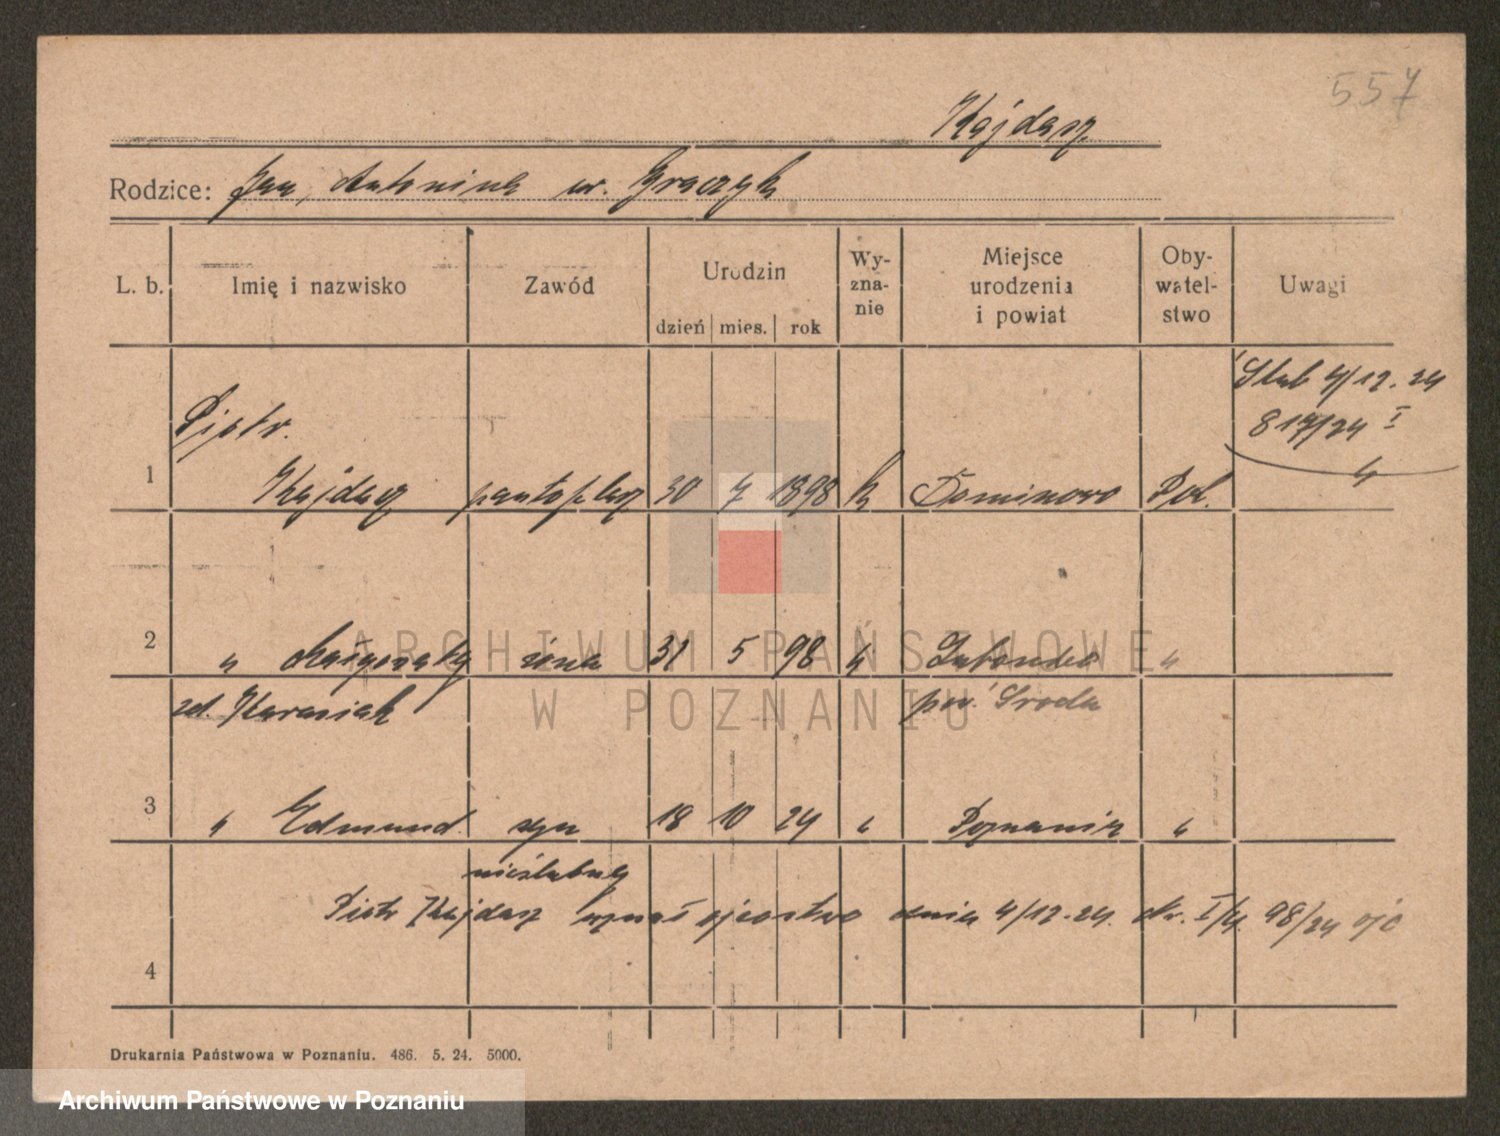 557
Kajdasz
Rodzice: Jan, Antonina ur. Graczyk
L. b. Imię i nazwisko Zawód Urodzin dzień mies. rok Wy-zna-nie Miejsce urodzenia i powiat Oby-watel-stwo Uwagi
Ślub 4/12. 24
817/24 I
Piotr
1 Kajdasz pantoflarz 30 7 1898 k Dominowo Pol.
2 " Małgorzata żona 31 5 98 " "
zd. Karasiak pow. Środa
3 " Edmund syn 18 10 24 " Poznaniu "
nieślubny
Piotr Kajdasz uznał ojcostwo dnia 4/12. 24. 98/24
4
Drukarnia Państwowa w Poznaniu. 486. 5. 24. 5000.
ARCHIWUM PAŃSTWOWE
W POZNANIU
Archiwum Państwowe w Poznaniu